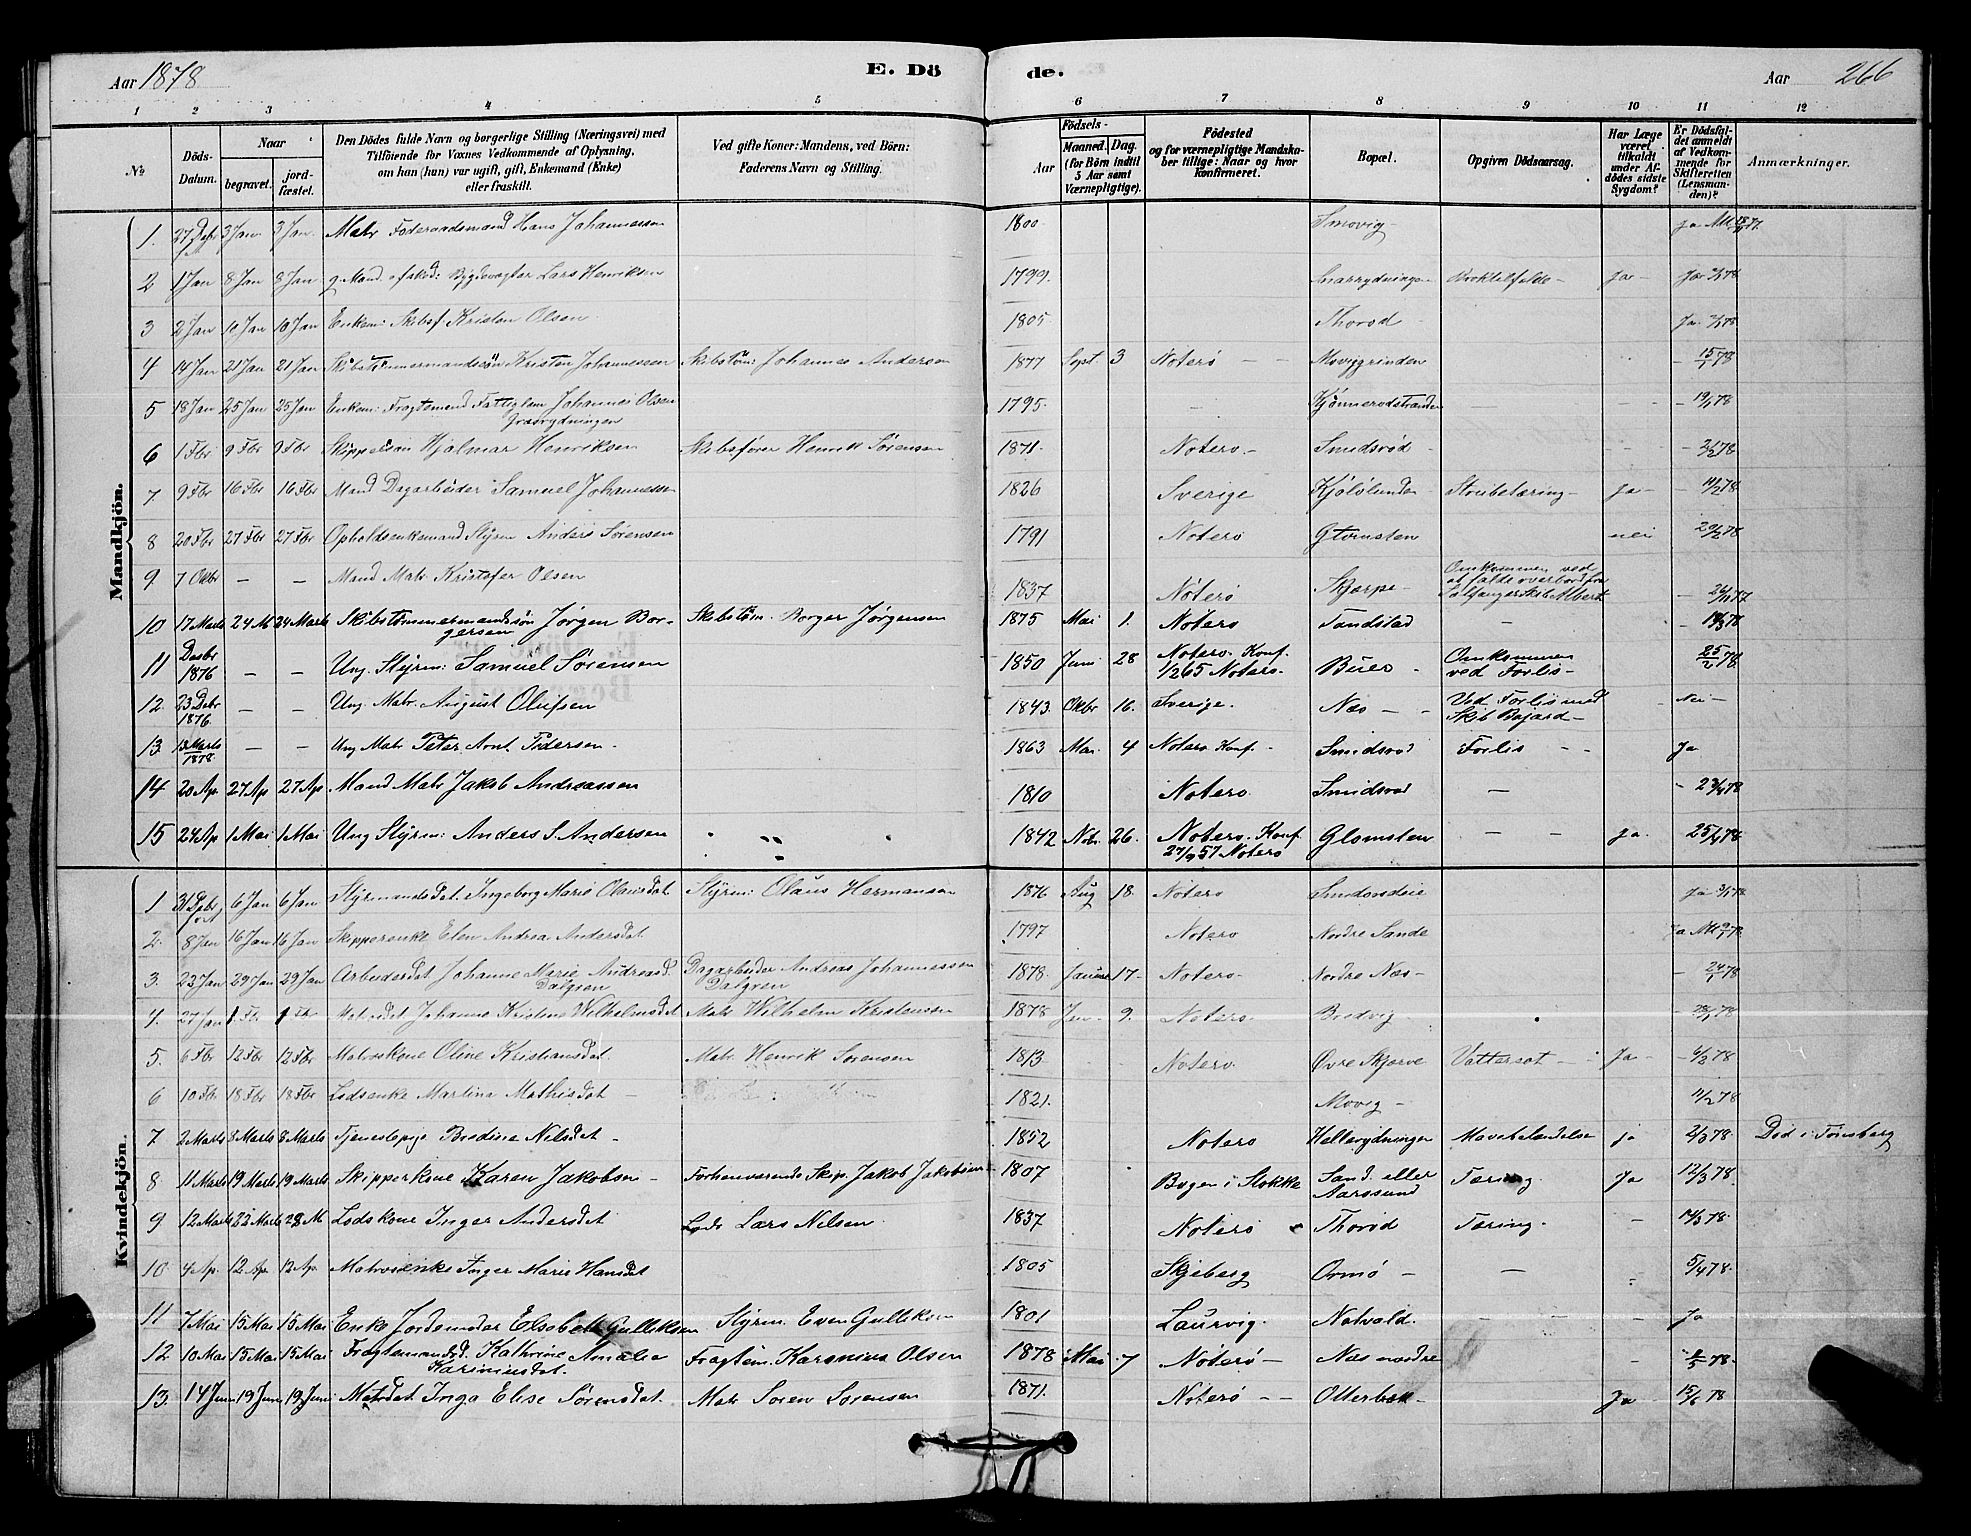 Aar 1878 E. Dö de. Aar 266
1 2 3 4 5 6 7 8 9 10 11 12
№ Döds-Datum. Naar begravet. jordfæstet. Den Dödes fulde Navn og borgerlige Stilling (Næringsvei) med Tilföiende for Voxnes Vedkommende af Oplysning, om han (hun) var ugift, gift, Enkemand (Enke) eller fraskilt. Ved gifte Koner: Mandens, ved Börn: Faderens Navn og Stilling. Födsels- Aar Maaned. Dag. (for Börn indtil 5 Aar samt Værnepligtige). Födested og for værnepligtige Mandskaber tillige: Naar og hvor konfirmeret. Bopæl. Opgiven Dödsaarsag. Har Læge været tilkaldt under Afdödes sidste Sygdom? Er Dödsfaldet anmeldt af Vedkommende for Skifteretten (Lensmanden)? Anmærkninger.
Mandkjön.
1. 27 Debr 3 Jan 3 Jan. Matr Föderaadsmand Hans Johannessen 1800 Smovig ja
2 1 Jan 8 Jan 8 Jan g Mand Bygdevægter Lars Henriksen 1799. Ja
3 2 Jan 10 Jan 10 Jan Enkem: Skibsf. Kristen Olsen 1805 Thorod Ja
4 14 Jan 21 Jan 21 Jan Skibstömmermandssön Kristen Johannessen Skibstöm: Johannes Andersen 1877 Sept 3 Noterö Moviggrinden 15/1 78
5 18 Jan 25 Jan 25 Jan Enkem: Fragtemand Fattiglem Johannes Olsen 1795. Kjönnerodstranden 19/1 78
Græsrydningen
6 1 Fbr 9 Fbr 9 Fbr Skippersön Hjalmar Henriksen Skibsförer Henrik Sörensen 1871. Noterö Smidsröd 2/2 78
7 9 Fbr 16 Fbr 16 Fbr Mand Dagarbeider Samuel Johannessen 1826 Sverige Kjölölunden Strubetæring ja
8 20 Fbr 27 Fbr 27 Fbr Opholdsenkemand Styrm Anders Sörensen 1791 Noterö Glomsten nei 20/2 78
9. 7 Okbr — — Mand Matr Kristofer Olsen 1837 Nöterö Skjerpe Omkommen ved at falde overbord fra Sælfangerskib Albert
10 17 Marts 24 M 24 Marts Skibstömmermandssön Jörgen Borgersen Skibstöm. Borger Jörgensen 1875 Mai 1. Noterö Tandstad —
11 Desbr 1876 — — Ung. Styrm: Samuel Sörensen 1850 Juni 28 Noterö Konf. 1/2 65 Noterö Buer Omkommen ved Forlis 25/2 78
12. 23 Debr 1876 — — Ung. Matr. August Olufsen 1843. Okbr 16. Sverige. Næs Ved Forlis med Skib Bajard Nei
13. 13 Marts 1878 — — Ung Matr Peter Arnt Pedersen 1863 Mai 4 Noterö Konf. Smidsröd Forlis Ja
14 20 Ap. 27 Ap 27 Ap Mand Matr Jakob Andreassen 1810 Noterö Smidsröd — 23/4 78
15 24 Ap 1 Mai 1 Mai Ung Styrm: Anders S. Andersen 1842 Nobr. 26. Noterö. Konf 27/9 57 Noterö Glomsten — — ja 25/4 78
Kvindekjön.
1 31 Debr 6 Jan 6 Jan Styrmandsdat. Ingeborg Marie Olausdat Styrm: Olaus Hermansen 1876 Aug 18 Noterö Smidsrodeie Ja
2. 8 Jan 16 Jan 16 Jan Skipperenke Elen Andrea Andersdat 1797 Noterö Nordre Sande
3. 22 Jan 29 Jan 29 Jan Arbeiderdat Johanne Marie Andreasd. Dalgren Dagarbeider Andreas Johannessen Dalgren 1878. Januar 17. Noterö. Nordre Næs 24/1 78
4. 27 Jan 1 Fbr 1 Fbr Matrosdat Johanne Kristine Wilhelmsdat Matr Wilhelm Kristensen 1878 Jan 9. Noterö. Bredvig
5. 6 Fbr 12 Fbr 12 Fbr Matroskone Oline Kristiansdat. Matr. Henrik Sorensen 1813 Noterö Øvre Skjerve Vattersot Ja 6/2 78
6 10 Fbr 18 Fbr 18 Fbr Lodsenke Martina Mathisdat 1821. Movig 11/2 78
7 2 Marts 8 Marts 8 Marts Tjenestepige Bredine Nilsdat 1852 Noterö Hellerydningen Mavebetændelse ja 2/3 78 Död i Tönsberg
8 11 Marts 19 Marts 19 Marts Skipperkone Karen Jakobsen Forhenværende Skip. Jakob Jakobsen 1807 Bogen i Stokke Sand eller Aarøsund Tæring. Ja 12/3 78.
9 12 Marts 22 Marts 22 M Lodskone Inger Andersdat Lods Lars Nilsen 1837 Noterö Thoröd Tæring. 14/3 78.
10 4 Ap. 12 Ap. 12 Ap. Matrosenke Inger Marie Hansdat 1805 Skjeberg Ormö — 5/4 78.
11 7 Mai 15 Mai 15 Mai Enke Jordemoder Elsebeth Gulliksen Styrm. Even Gulliksen 1801 Laurvig. Notvold. Ja
12 10 Mai 15 Mai 15 Mai Fragtemandsd. Kathrine Amalie Kariniusdat. Fragtem. Karenius Olsen 1878 Mai 7 Nöterö Næs nordre
13. 14 Juni 19 Juni 19 Juni Matrdat Inga Elise Sörensdat. Matr Soren Sorensen 1871. Noterö Otterbæk Ja 15/6 78